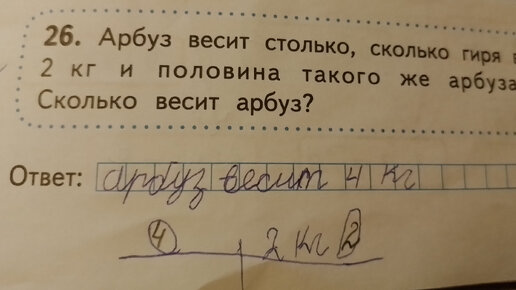 26. Арбуз весит столько, сколько гиря в
2 кг и половина такого же арбуза
Сколько весит арбуз?
Ответ: арбуз весит 4 кг
4 2 кг 2